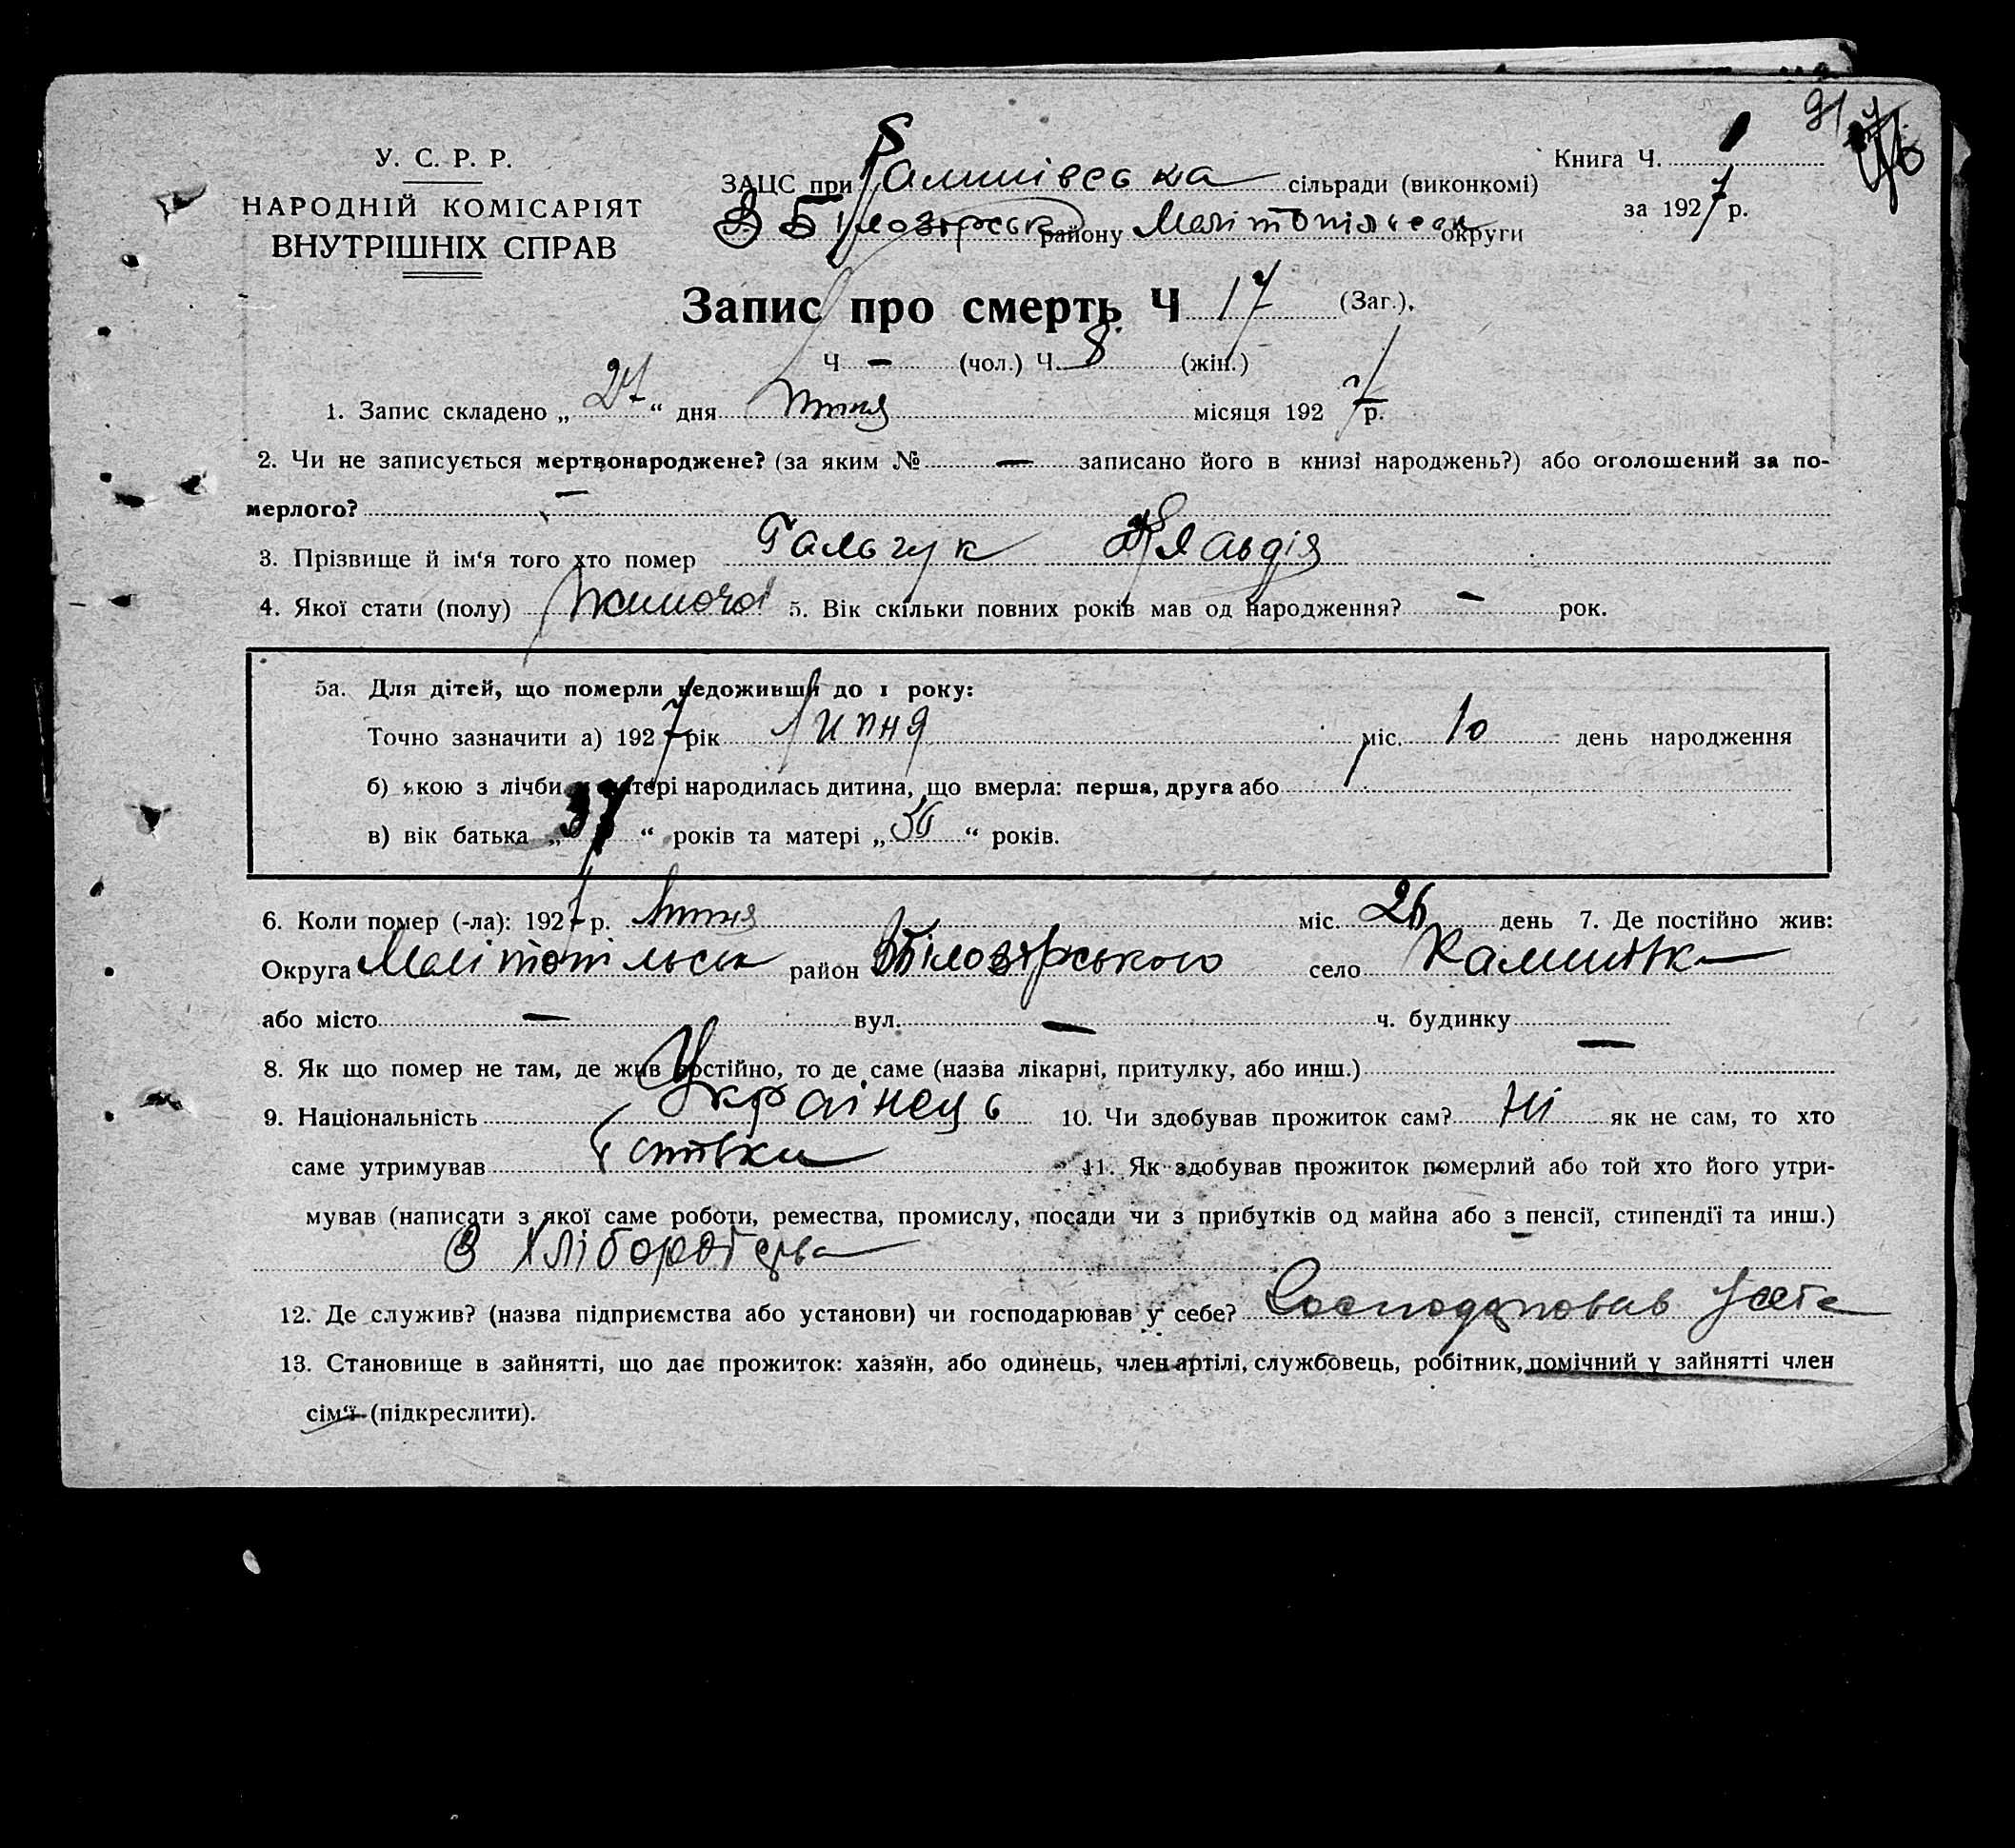 91
У. С. Р. Р.
НАРОДНІЙ КОМІСАРІЯТ
ВНУТРІШНІХ СПРАВ
ЗАЦС при сільради (виконкомі)
району округи
Книга Ч. 1
за 1927 р.
Запис про смерть Ч 17 (Заг.).
Ч - (чол.) Ч. 8 (жін.)
1. Запис складено „ 27 “ дня липня місяця 1927 р.
2. Чи не записується мертвонароджене? (за яким № — записано його в книзі народжень?) або оголошений за по-
мерлого? —
3. Прізвище й ім‘я того хто помер Гальчук Клавдія
4. Якої стати (полу) жиночої 5. Вік скільки повних років мав од народження? - рок.
5а. Для дітей, що померли недоживши до 1 року:
Точно зазначити а) 1927 рік липня міс. 10 день народження
б) якою з лічби у матері народилась дитина, що вмерла: перша, друга або
в) вік батька „ 37 “ років та матері „ 36 “ років.
6. Коли помер (-ла): 1927 р. липня міс. 26 день 7. Де постійно жив:
Округа Мелітопільськ район Білозірського село
або місто — вул. — ч. будинку —
8. Як що помер не там, де жив постійно, то де саме (назва лікарні, притулку, або инш.)
9. Національність Українець 10. Чи здобував прожиток сам? Ні як не сам, то хто
саме утримував батьки 11. Як здобував прожиток померлий або той хто його утри-
мував (написати з якої саме роботи, ремества, промислу, посади чи з прибутків од майна або з пенсії, стипендії та инш.)
З хліборобства
12. Де служив? (назва підприємства або установи) чи господарював у себе? Господарював у себе
13. Становище в зайнятті, що дає прожиток: хазяїн, або одинець, член артілі, службовець, робітник, помічний у зайнятті член
сім‘ї (підкреслити).